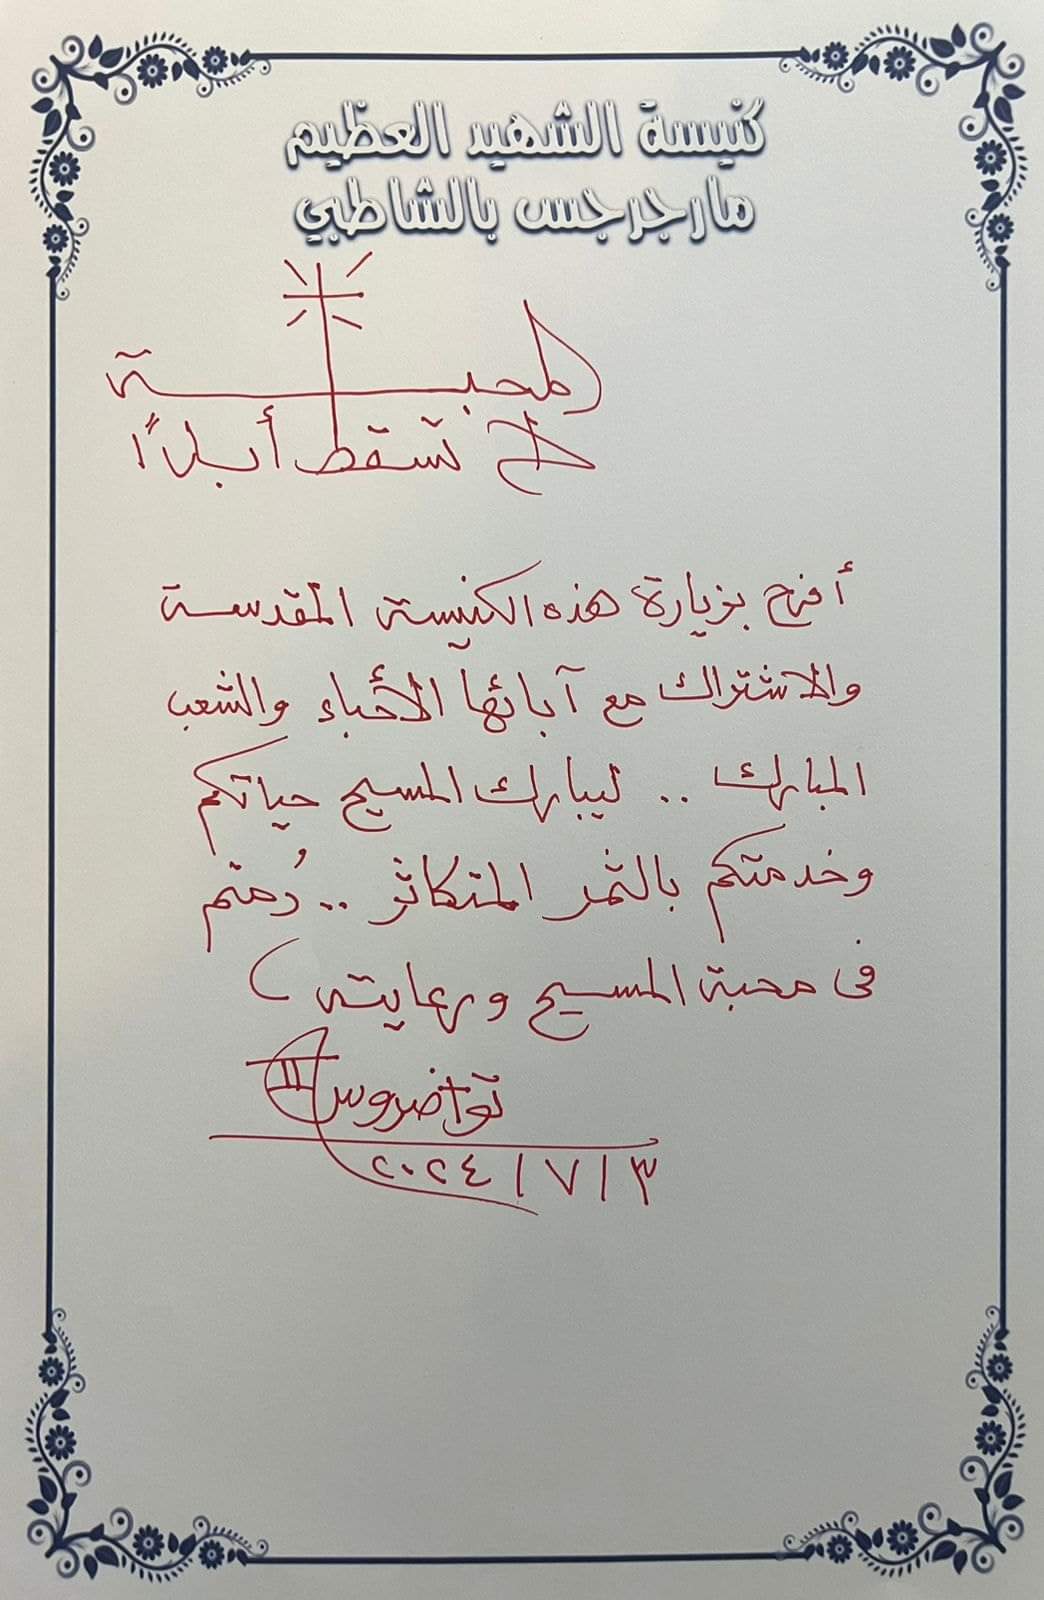 كنيسة الشهيد العظيم
مارجرجس بالشاطبي
المحبة
لا تسقط أبدًا
أفرح بزيارة هذه الكنيسة المقدسة
والاشتراك مع آبائها الأحباء والشعب
المبارك .. ليبارك المسيح حياتكم
وخدمتكم بالثمر المتكاثر .. دُمتم
فى محبة المسيح ورعايته
تواضروس II
٣ / ٧ / ٢٠٢٤